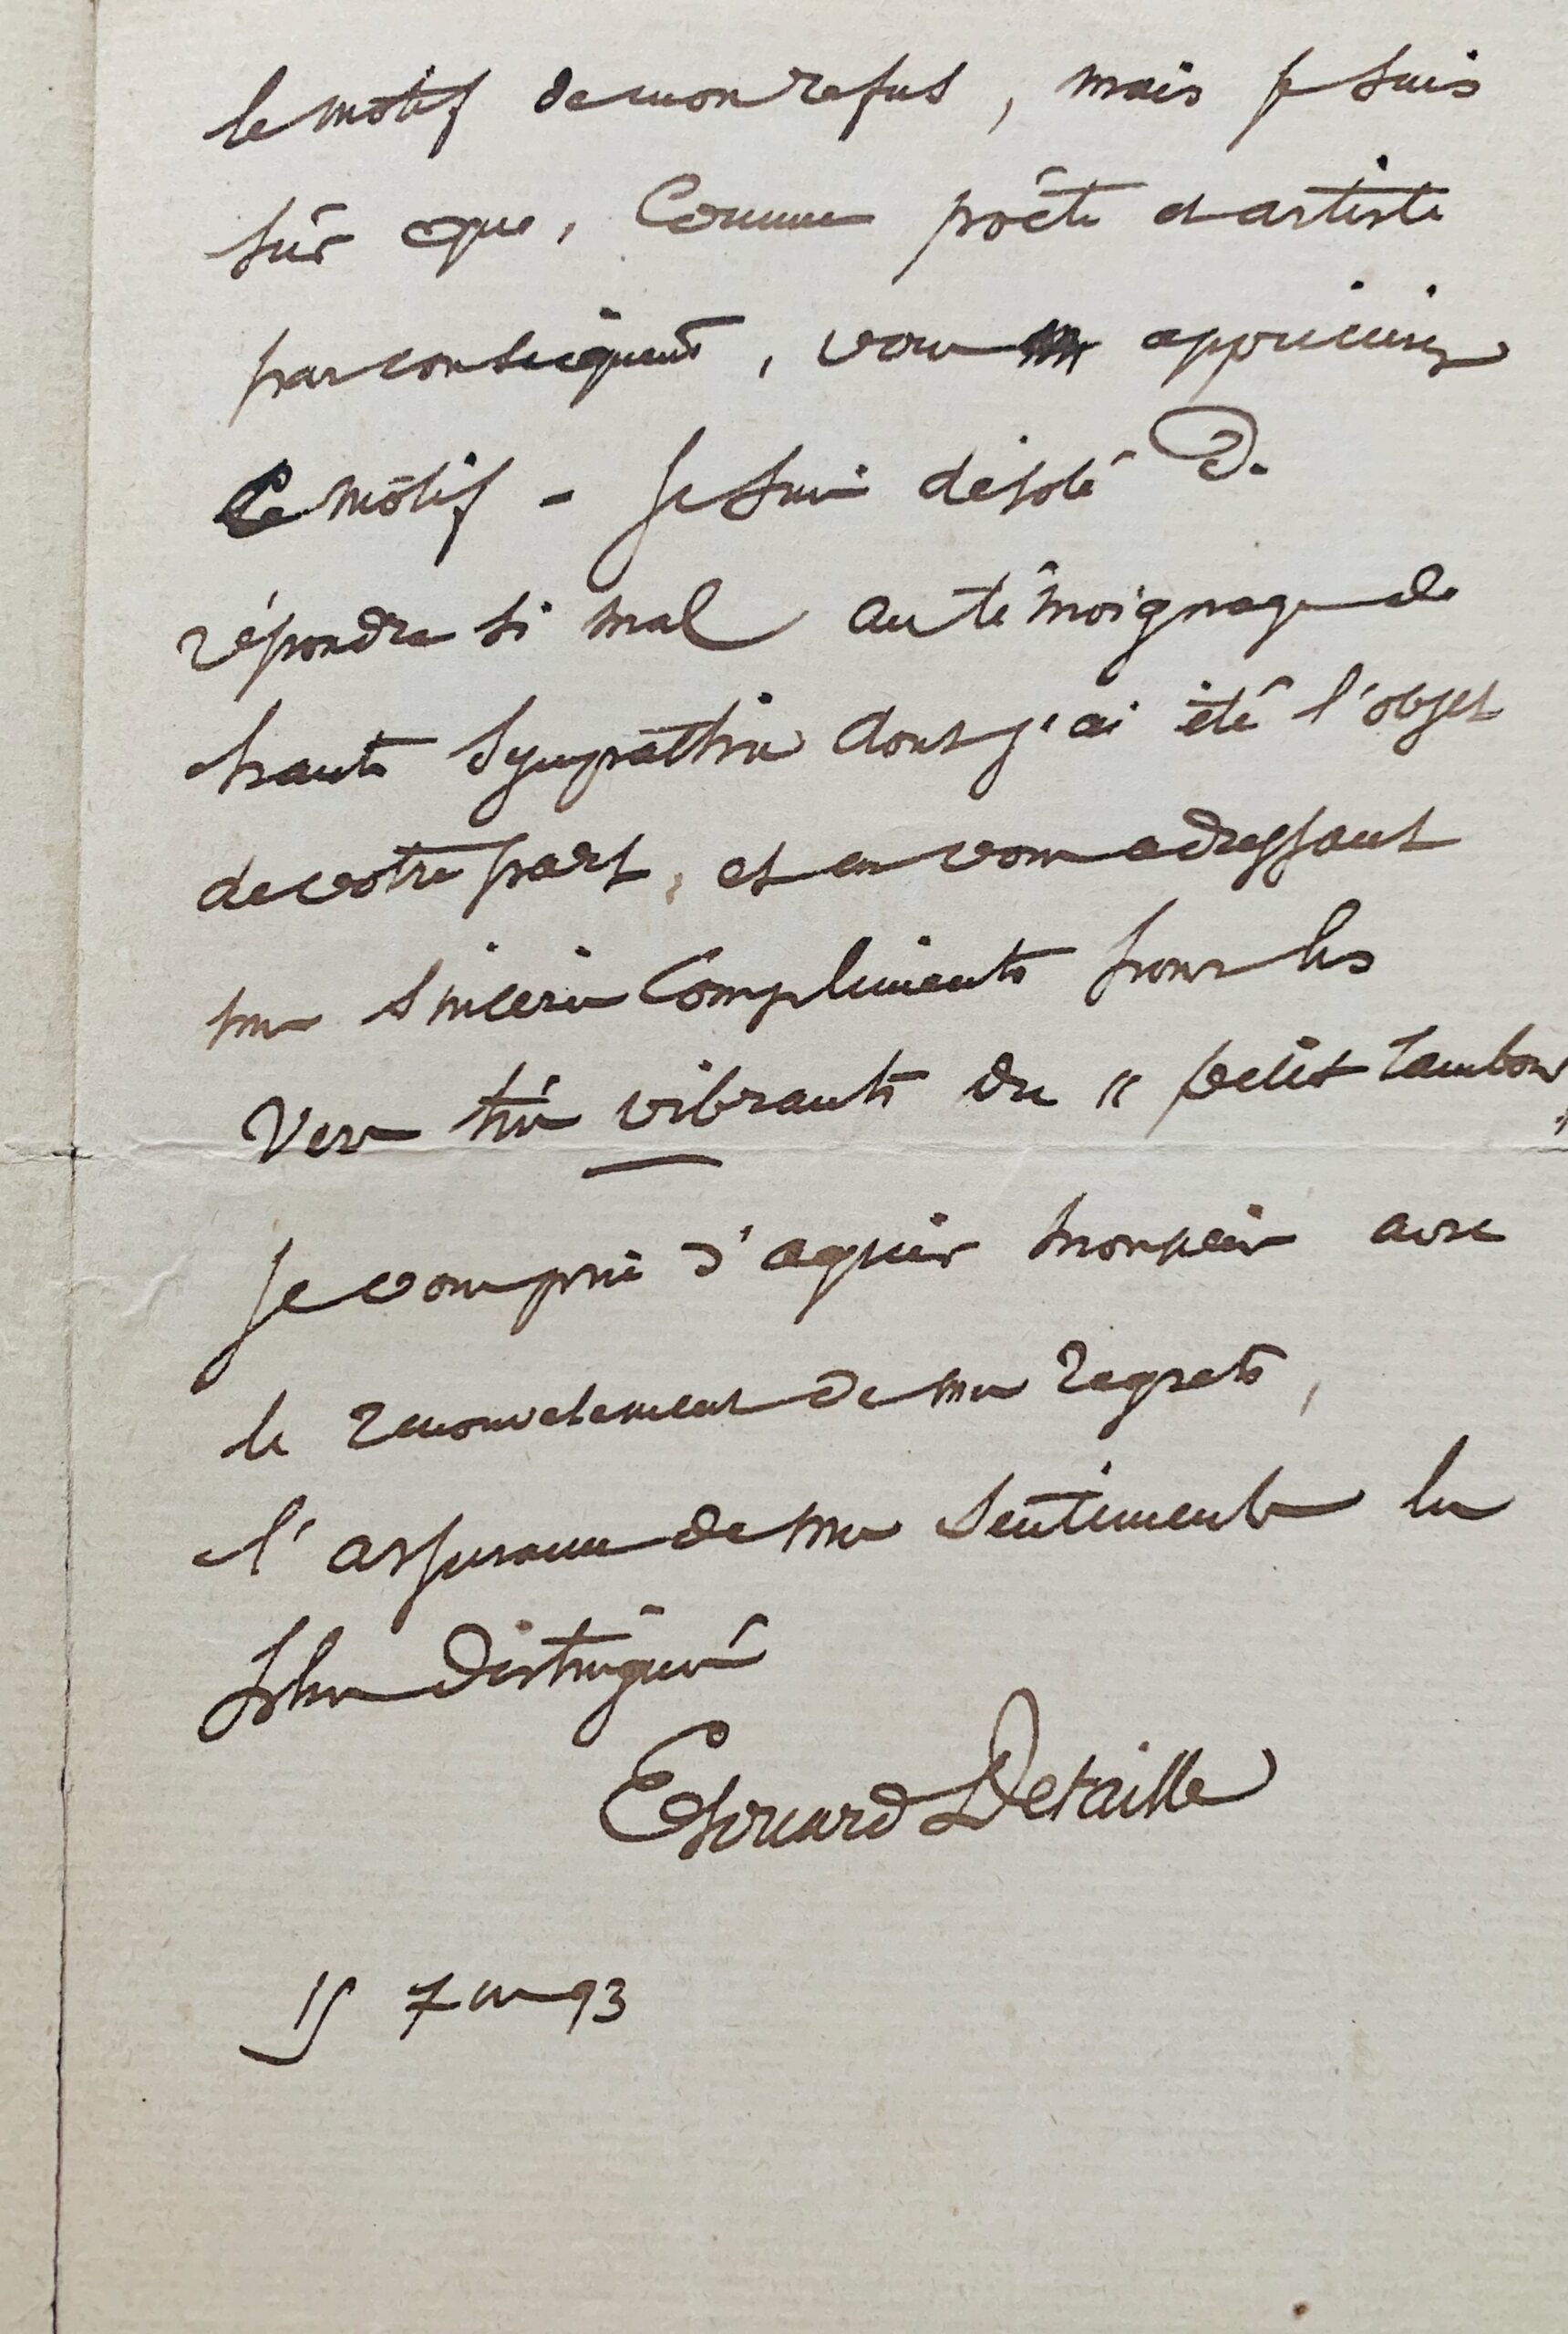 le motif de mon refus, mais je suis
sûr que, comme poëte et artiste
par conséquent, vous apprécierez
ce motif - Je suis désolé de
répondre si mal au témoignage de
haute sympathie dont j'ai été l'objet
de votre part, et en vous adressant
mes sincères compliments pour les
vers très vibrants du "petit tambour"
Je vous prie d'agréer monsieur avec
le renouvelement de mes regrets,
l'assurance de mes sentiments les
plus distingués
Edouard Detaille
15 7bre 93